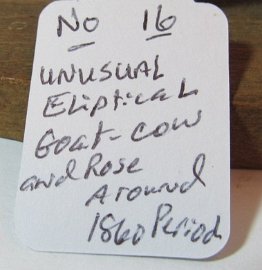 No 16
UNUSUAL
Eliptical
Goat-cow
and Rose
Around
1860 Period